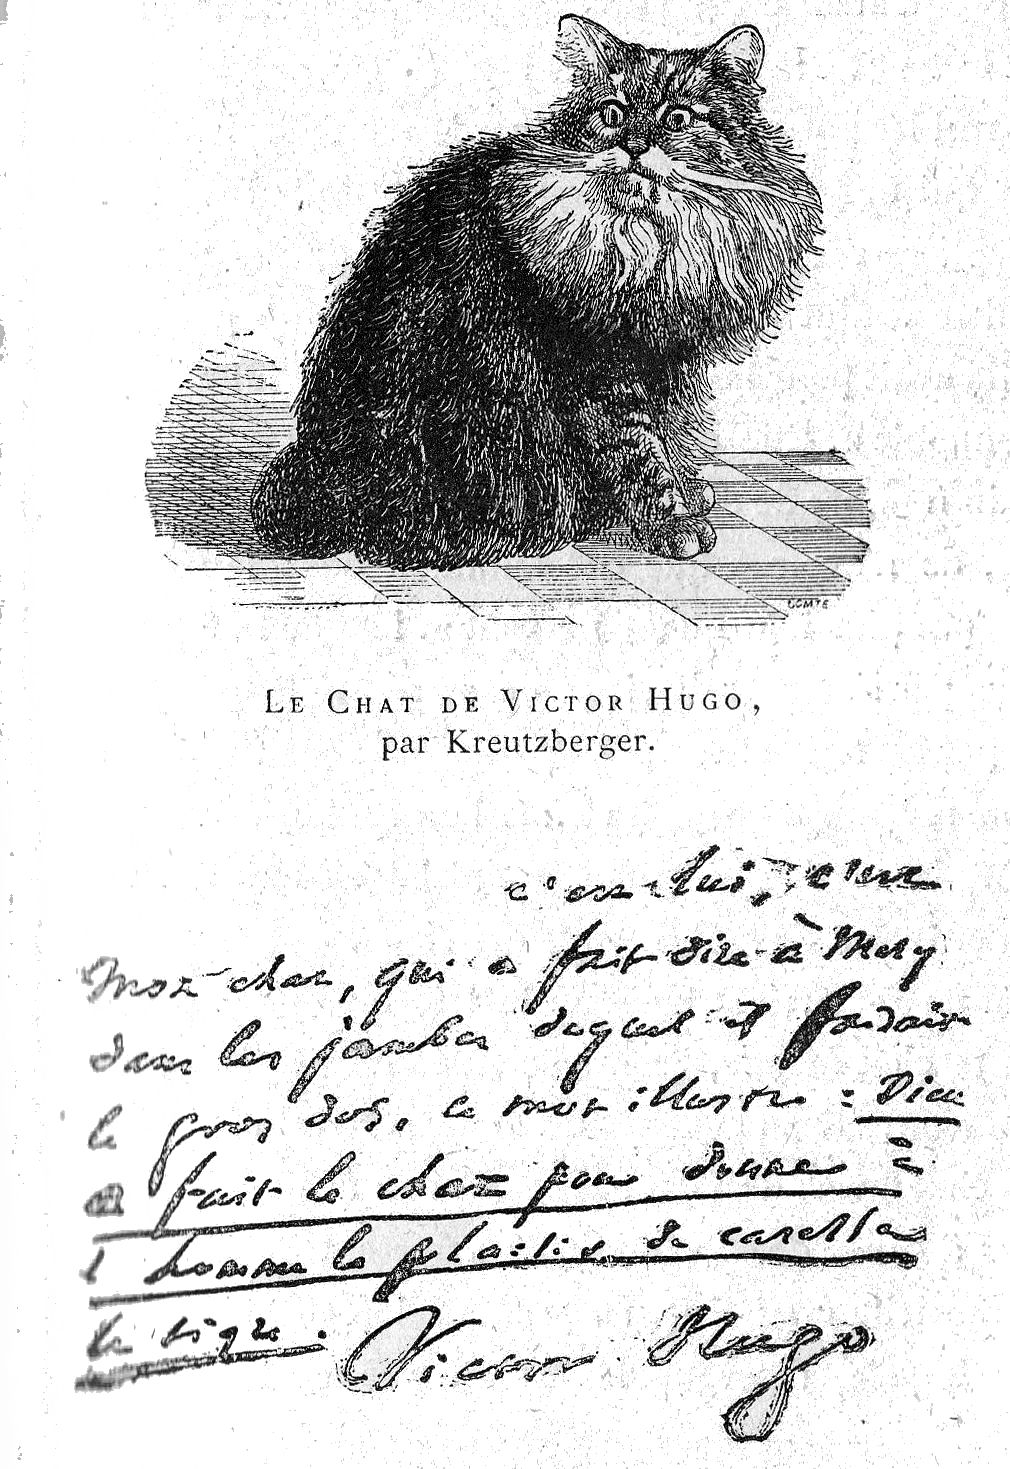 COMTE
LE CHAT DE VICTOR HUGO,
par Kreutzberger.
c'est lui, c'est
mon chat, qui a fait dire à Mery
dans les jambes duquel il faisait
le gros dos, ce mot illustre : Dieu
a fait le chat pour donner à
l'homme le plaisir de caresser
le tigre.
Victor Hugo